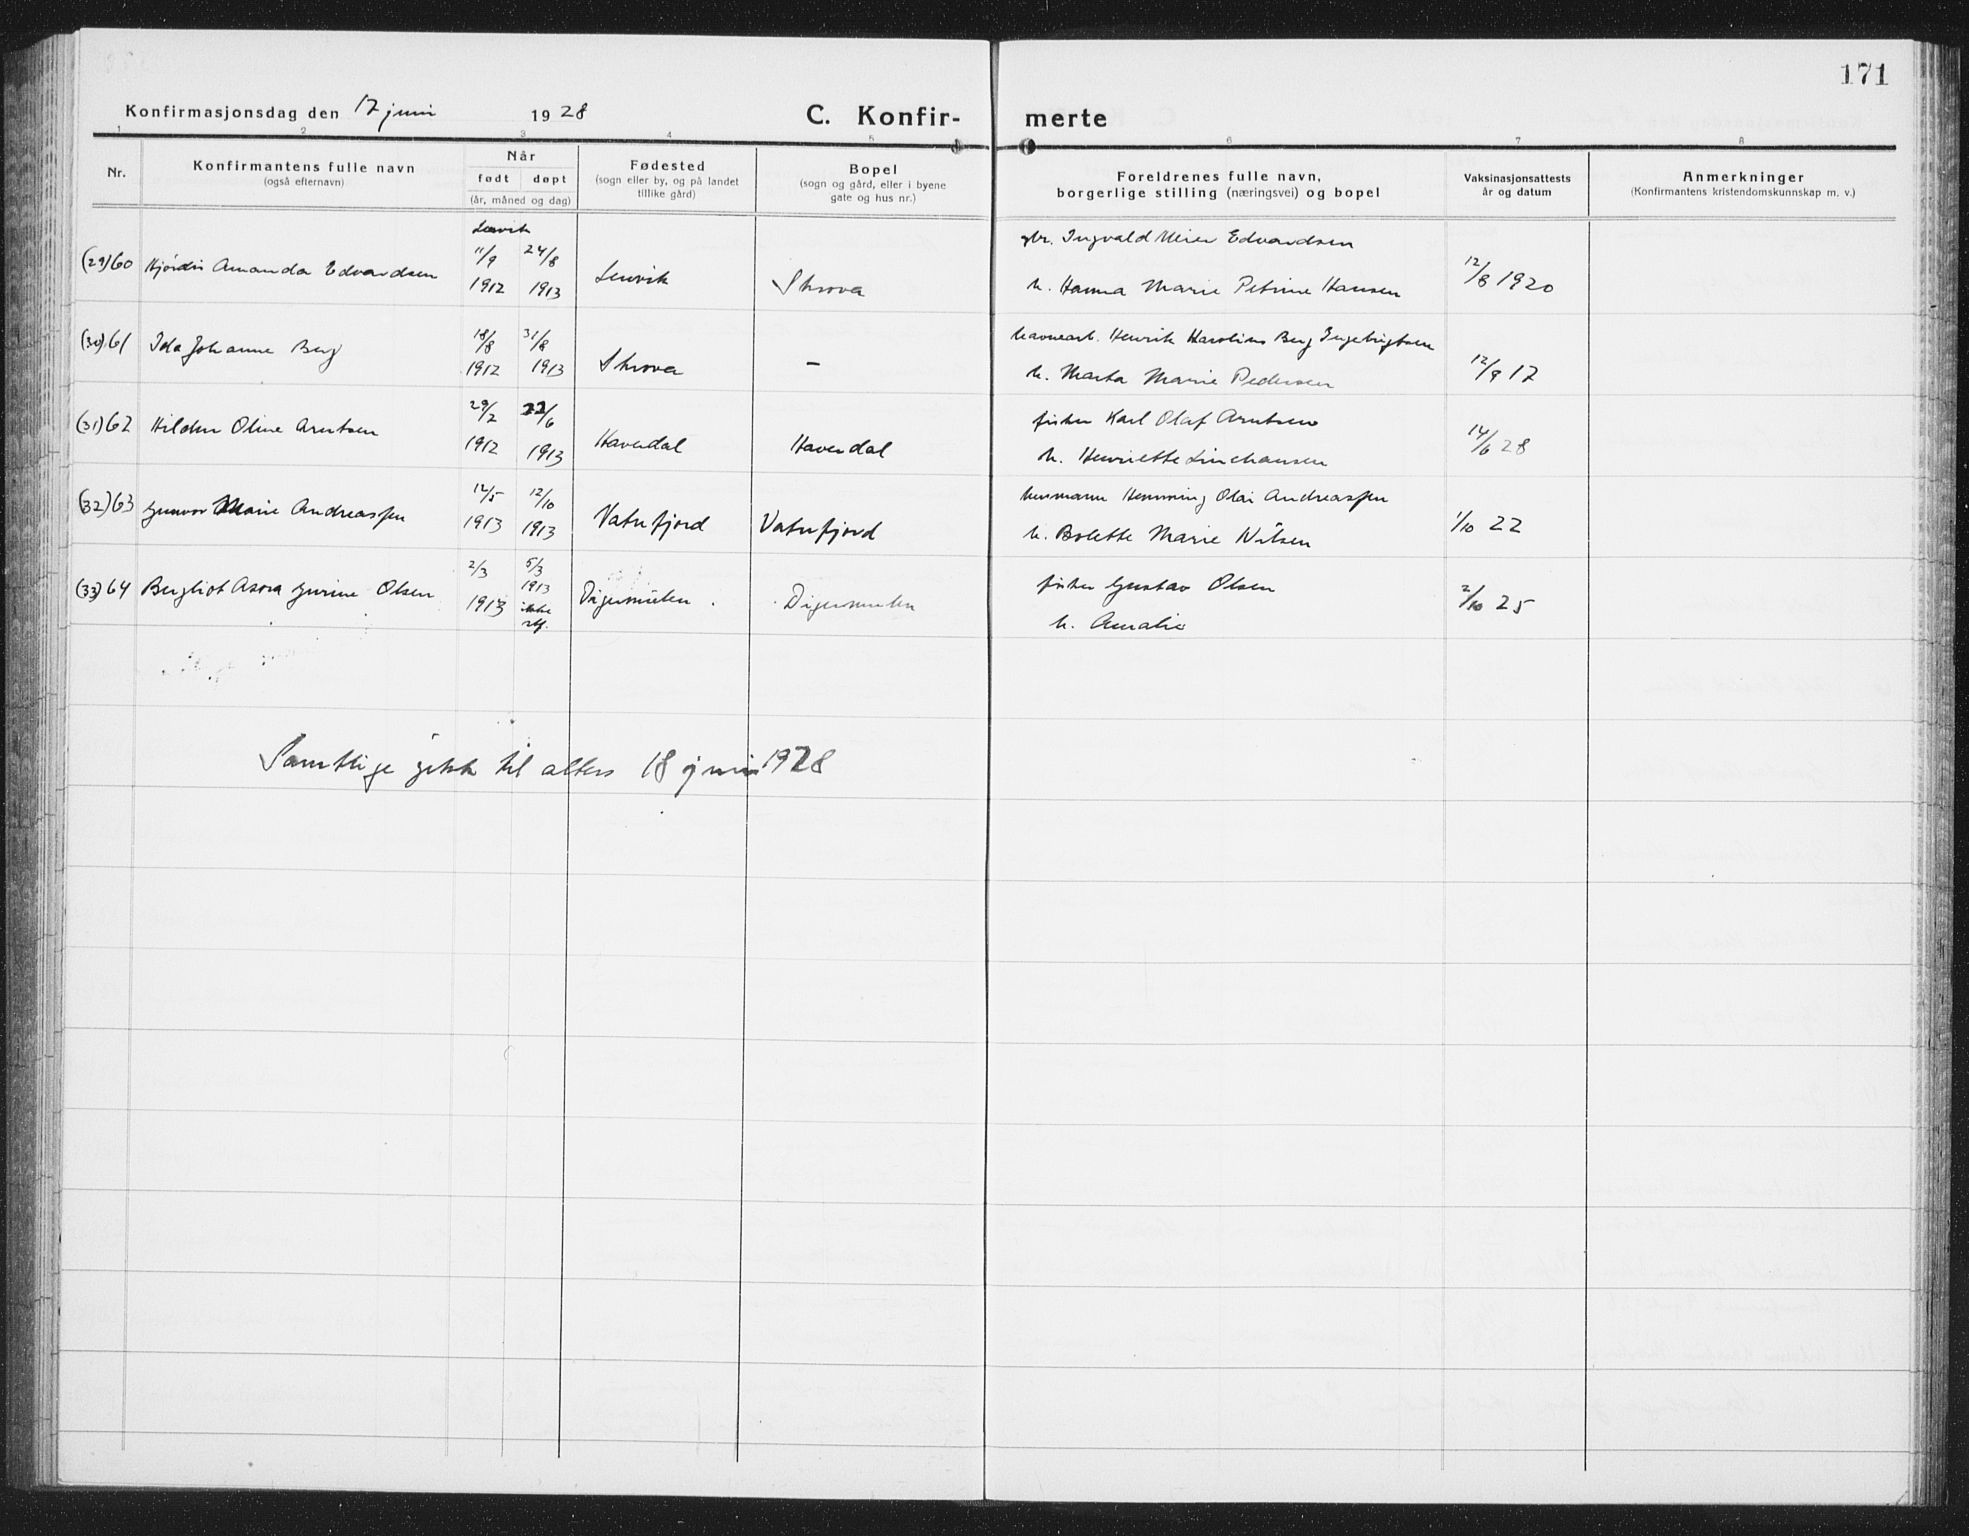 171
Konfirmasjonsdag den 17 juni 1928 C. Konfirmerte
1 2 3 4 5 6 7 8
Nr.
Konfirmantens fulle navn
(også efternavn)
Når
født døpt
(år, måned og dag)
Fødested
(sogn eller by, og på landet
tillike gård)
Bopel
(sogn og gård, eller i byene
gate og hus nr.)
Foreldrenes fulle navn,
borgerlige stilling (næringsvei) og bopel
Vaksinasjonsattests
år og datum
Anmerkninger
(Konfirmantens kristendomskunnskap m. v.)
Lenvik
(29)60 Hjördis Amanda Edvardsen 11/9 1912 24/8 1913 Lenvik Skrova gbr. Ingvald Meier Edvardsen
h. Hanna Marie Petrine Hansen 12/8 1920
(30)61 Ida Johanne Berg 18/8 1912 31/8 1913 Skrova — havnearb. Henrik Karolius Berg Ingebrigtsen
h. Marta Marie Pedersen 12/9 17
(31)62 Hildur Oline Arntsen 29/2 1912 22/6 1913 Haverdal Haverdal fisker Karl Olaf Arntsen
h. Henriette Linehansen 14/6 28
(32)63 Gunvor Marie Andreassen 12/5 1913 12/10 1913 Vatnfjord Vatnfjord husmann Hemming Olai Andreassen
h. Bolette Marie Nilsen 1/10 22
(33)64 Bergliot Asora Gurine Olsen 2/3 1913 5/3 1913 ikke stf. Digermulen Digermulen fisker Gustav Olsen
h. Amalie 2/10 25
Samtlige gikk til alters 18 juni 1928